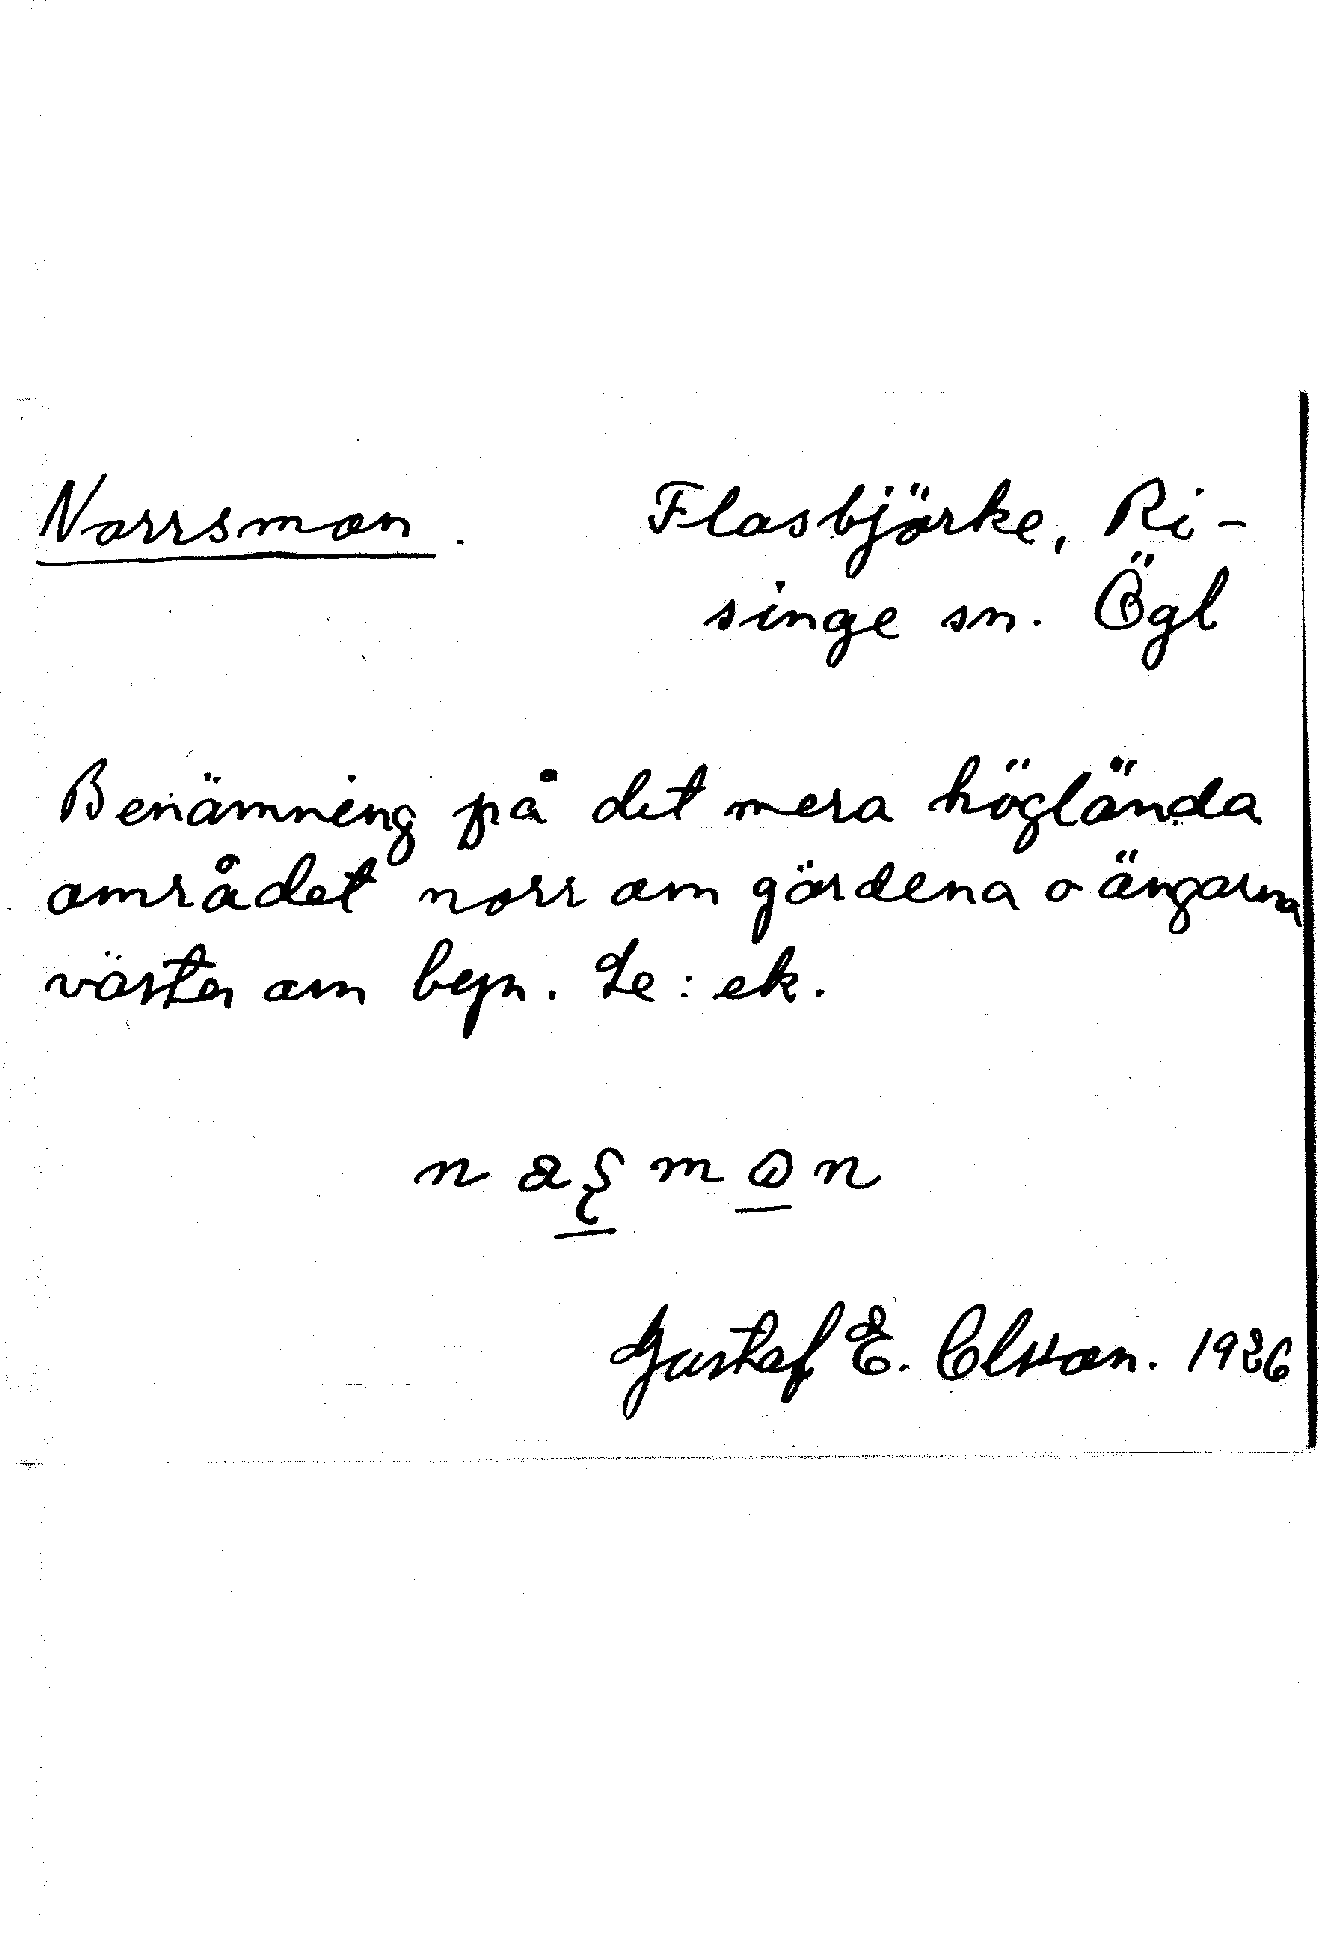 Norrsmon. Flasbjörke, Ri-
singe sn. Ögl
Benämning på det mera höglända
området norr om gärdena o ängarna
väster om byn. Le: ek.
Gustaf E. Olsson. 1926